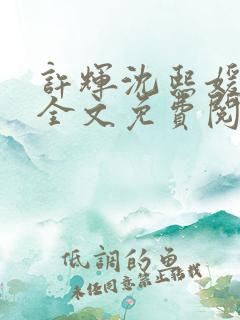 許輝沈熙媛
全文免費閱
低調的魚
未經同意禁止轉載